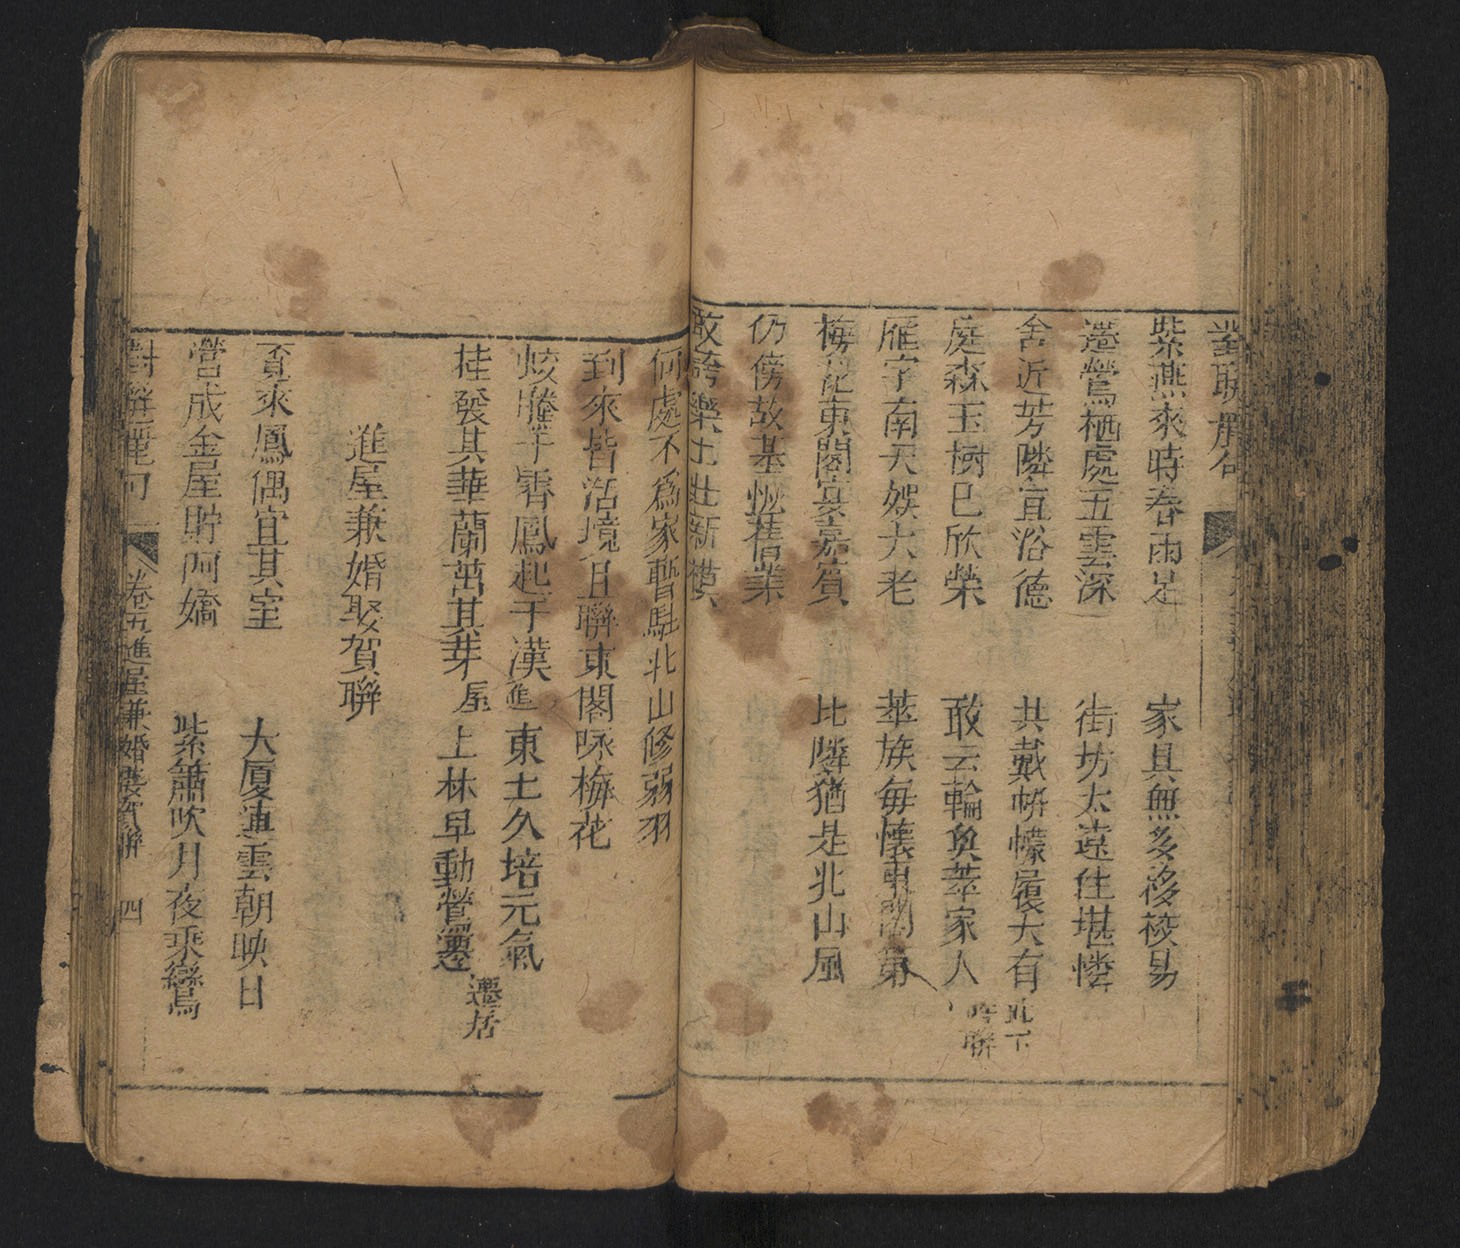 紫燕來時春雨足　家具無多移徙易
遷鶯栖處五雲深　街坊太遠住堪憐
舍近芳隣宜浴德　共戴帡幪履大有
庭森玉樹已欣榮　敢云輪奐萃家人
雁字南天娛大老　萃族每懷東閣第
梅花東閣宴嘉賓　比隣猶是北山風
仍傍故基恢舊業
敢誇樂土壯新模
何處不爲家暫駐北山修羽
到來皆活境且聯東閣咏梅花
蛟騰于霄鳳起于漢　東土久培元氣
桂發其華蘭茁其芽　上林早動鶯遷
進屋
遷居
進屋兼婚娶賀聯
賁來鳳偶宜其室　大厦連雲朝映日
營成金屋貯阿嬌　紫簫吹月夜乘鸞
卷五進屋兼婚娶賀聯　四